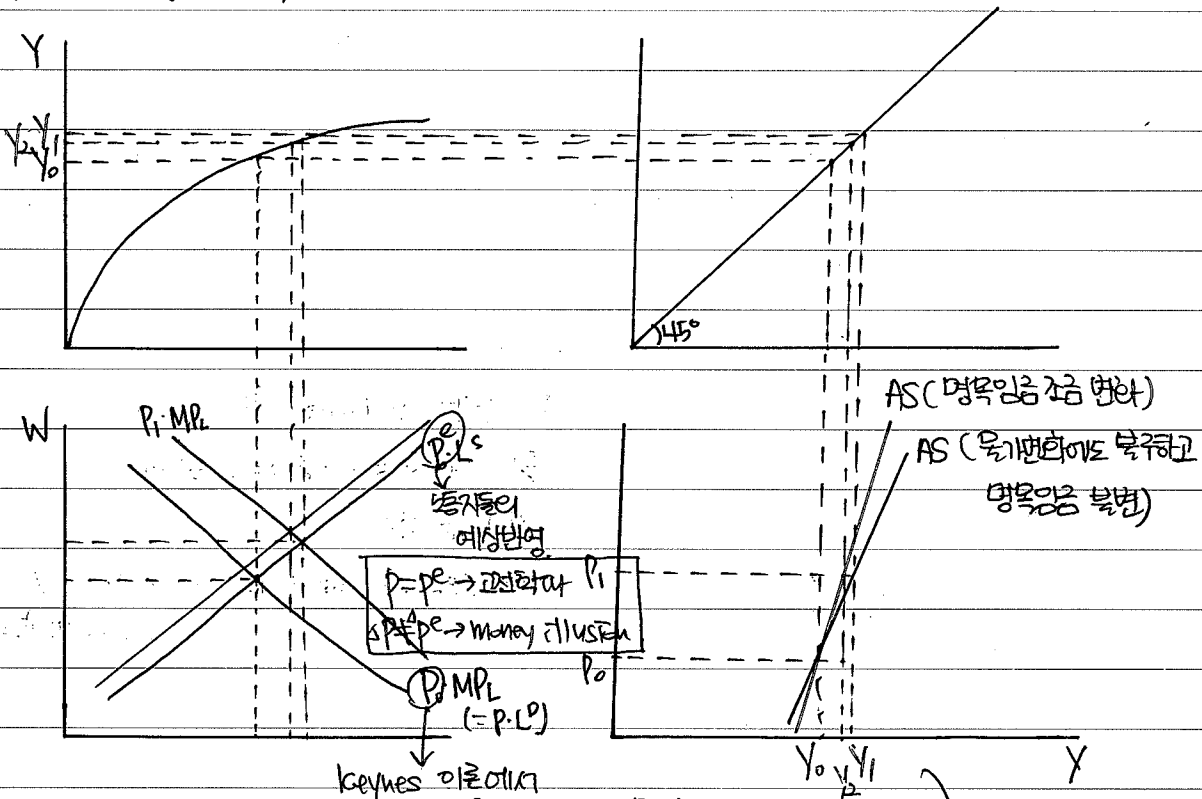 Y
Y₁
Y₂
Y₀
45°
W
P₁·MPL
Pᵉ·Lˢ
노동자들의
예상반영
P=Pᵉ→고전학파
△P≠△Pᵉ→money illusion
P₀ MPL
(=P·Lᴰ)
Keynes 이론에서
AS(명목임금 조금 변화)
AS (물가변화에도 불구하고
명목임금 불변)
P₁
P₀
Y₀ Y₂ Y₁
Y